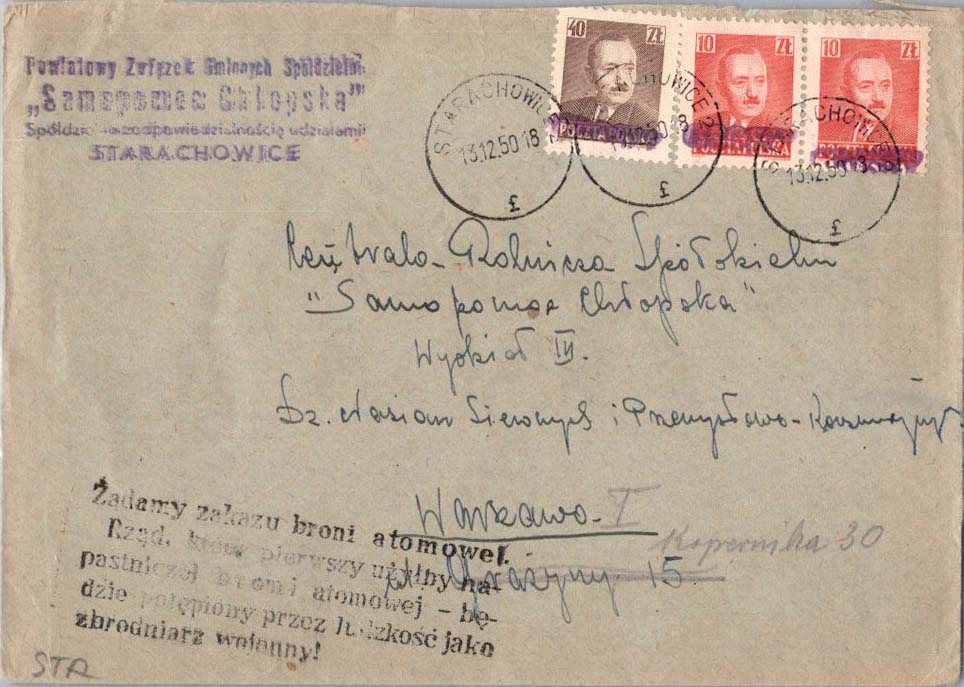 Powiatowy Związek Gminnych Spółdzielni
„Samopomoc Chłopska”
Spółdzielnia z odpowiedzialnością udziałami
STARACHOWICE
40 ZŁ
10 ZŁ
10 ZŁ
POCZTA POLSKA
POCZTA POLSKA
STARACHOWICE 2
13.12.50 18
3
STARACHOWICE 2
3
STARACHOWICE
13.12.50 18
3
Centrala Rolnicza Spółdzielni
"Samopomoc Chłopska"
Wydział IV.
Dz. Nasion Siewnych i Przemysłowo-Konsumcyjnych
Warszawa I
Kopernika 30
15
Żądamy zakazu broni atomowej.
Rząd, który pierwszy użyłby na-
pastniczej broni atomowej – bę-
dzie potępiony przez ludzkość jako
zbrodniarz wojenny!
STA